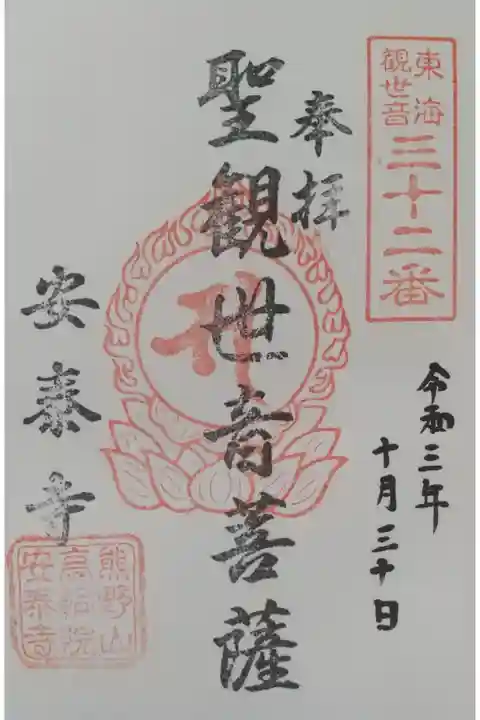 東海
観世音
三十二番
奉拝
令和三年
十月三十日
聖観世音菩薩
安泰寺
熊野山
安泰寺